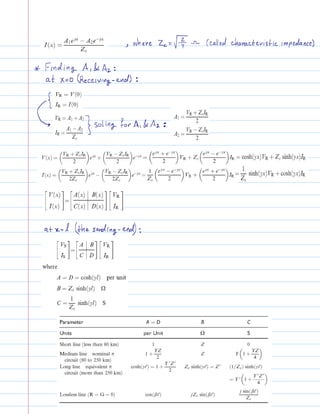 I(x) = (A₁e^{γx} − A₂e^{−γx}) / Z_c , where Z_c = √(z/y) Ω (called characteristic impedance)
* Finding A₁ & A₂ :
at x=0 (Receiving-end) :
V_R = V(0)
I_R = I(0)
V_R = A₁ + A₂
I_R = (A₁ − A₂) / Z_c
} solving for A₁ & A₂ :
A₁ = (V_R + Z_c I_R) / 2
A₂ = (V_R − Z_c I_R) / 2
V(x) = ((V_R + Z_c I_R)/2) e^{γx} + ((V_R − Z_c I_R)/2) e^{−γx} = ((e^{γx} + e^{−γx})/2) V_R + Z_c ((e^{γx} − e^{−γx})/2) I_R = cosh(γx)V_R + Z_c sinh(γx)I_R
I(x) = ((V_R + Z_c I_R)/2Z_c) e^{γx} − ((V_R − Z_c I_R)/2Z_c) e^{−γx} = 1/Z_c ((e^{γx} − e^{−γx})/2) V_R + ((e^{γx} + e^{−γx})/2) I_R = 1/Z_c sinh(γx)V_R + cosh(γx)I_R
[V(x) I(x)] = [A(x) B(x) C(x) D(x)] [V_R I_R]
at x=l (the sending-end) :
[V_S I_S] = [A B C D] [V_R I_R]
where
A = D = cosh(γl) per unit
B = Z_c sinh(γl) Ω
C = 1/Z_c sinh(γl) S
Parameter A = D B C
Units per Unit Ω S
Short line (less than 80 km) 1 Z 0
Medium line nominal π circuit (80 to 250 km) 1 + YZ/2 Z Y(1 + YZ/4)
Long line equivalent π circuit (more than 250 km) cosh(γl) = 1 + Y′Z′/2 Z_c sinh(γl) = Z′ (1/Z_c) sinh(γl) = Y′(1 + Y′Z′/4)
Lossless line (R = G = 0) cos(βl) jZ_c sin(βl) j sin(βl)/Z_c